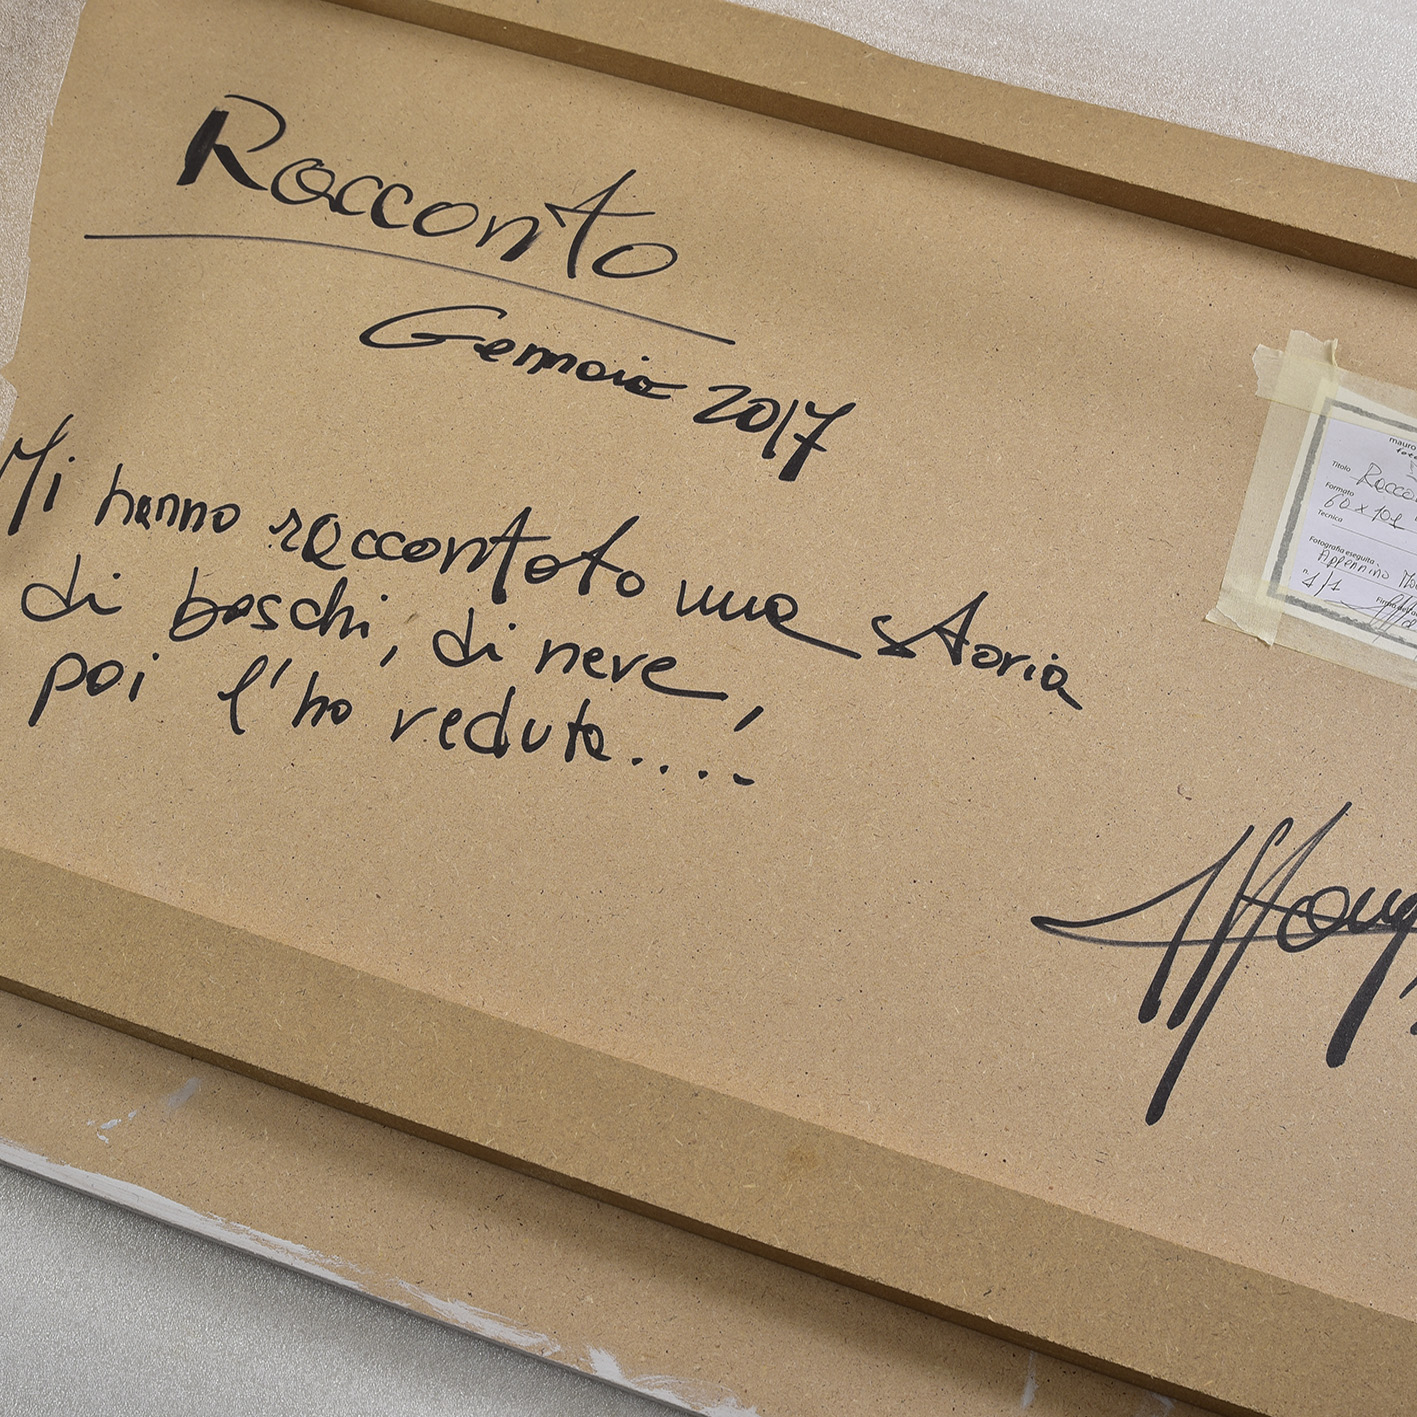 Racconto
Gennaio 2017
Mi hanno raccontato una storia
di boschi, di neve,
poi l'ho veduta....
mauro
Titolo Racco
Formato
60 x 101
Tecnica
Fotografia eseguita
Appennino
n° 1/1